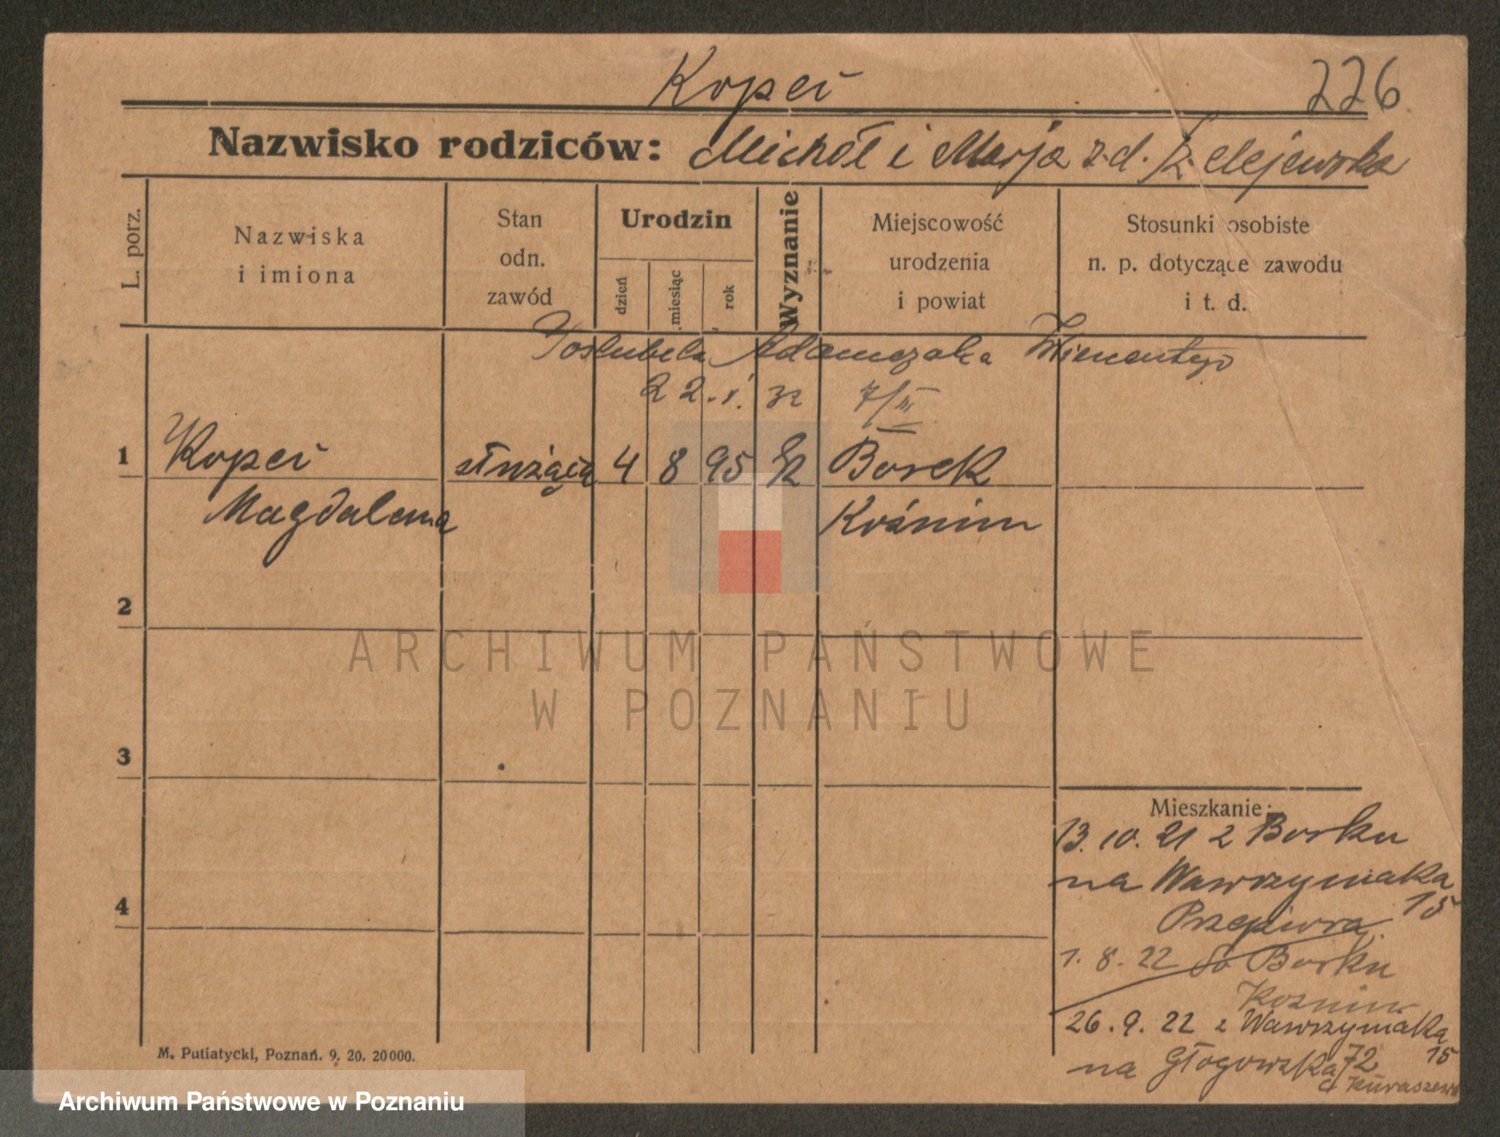 Kopeć
226
Nazwisko rodziców: Michał i Marja z d.
L. porz.
Nazwiska
i imiona
Stan
odn.
zawód
Urodzin
dzień
miesiąc
rok
Wyznanie
Miejscowość
urodzenia
i powiat
Stosunki osobiste
n. p. dotyczące zawodu
i t. d.
Poślubiła Adamczaka Wincentego
22. 1. 32 7/III
1 Kopeć służąca 4 8 95 Borek
Magdalena Koźmin
2
3
4
Mieszkanie:
13. 10. 21 z Borku
na Wawrzyniaka
15
Przepiora
1. 8. 22 do Borku
Koźmin
26. 9. 22 z Wawrzyniaka
15
na Głogowską 72
M. Putiatycki, Poznań. 9. 20. 20000.
ARCHIWUM PAŃSTWOWE
W POZNANIU
Archiwum Państwowe w Poznaniu